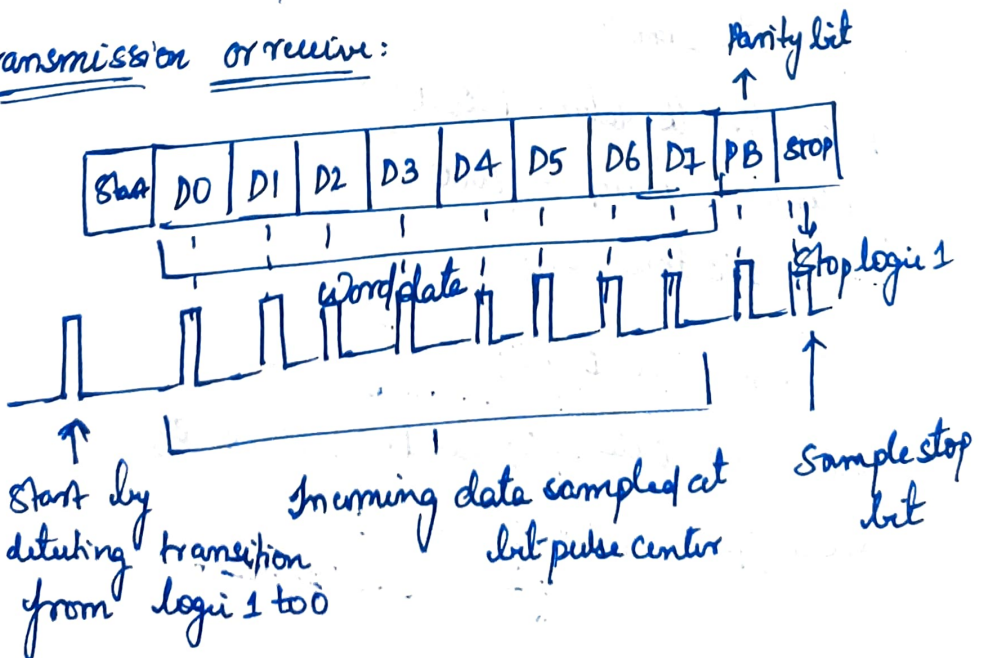 ransmission or receive:
Parity bit
Start D0 D1 D2 D3 D4 D5 D6 D7 PB STOP
Word/data
Stop logic 1
Start by
detecting transition
from logic 1 to 0
Incoming data sampled at
bit-pulse center
Sample stop
bit